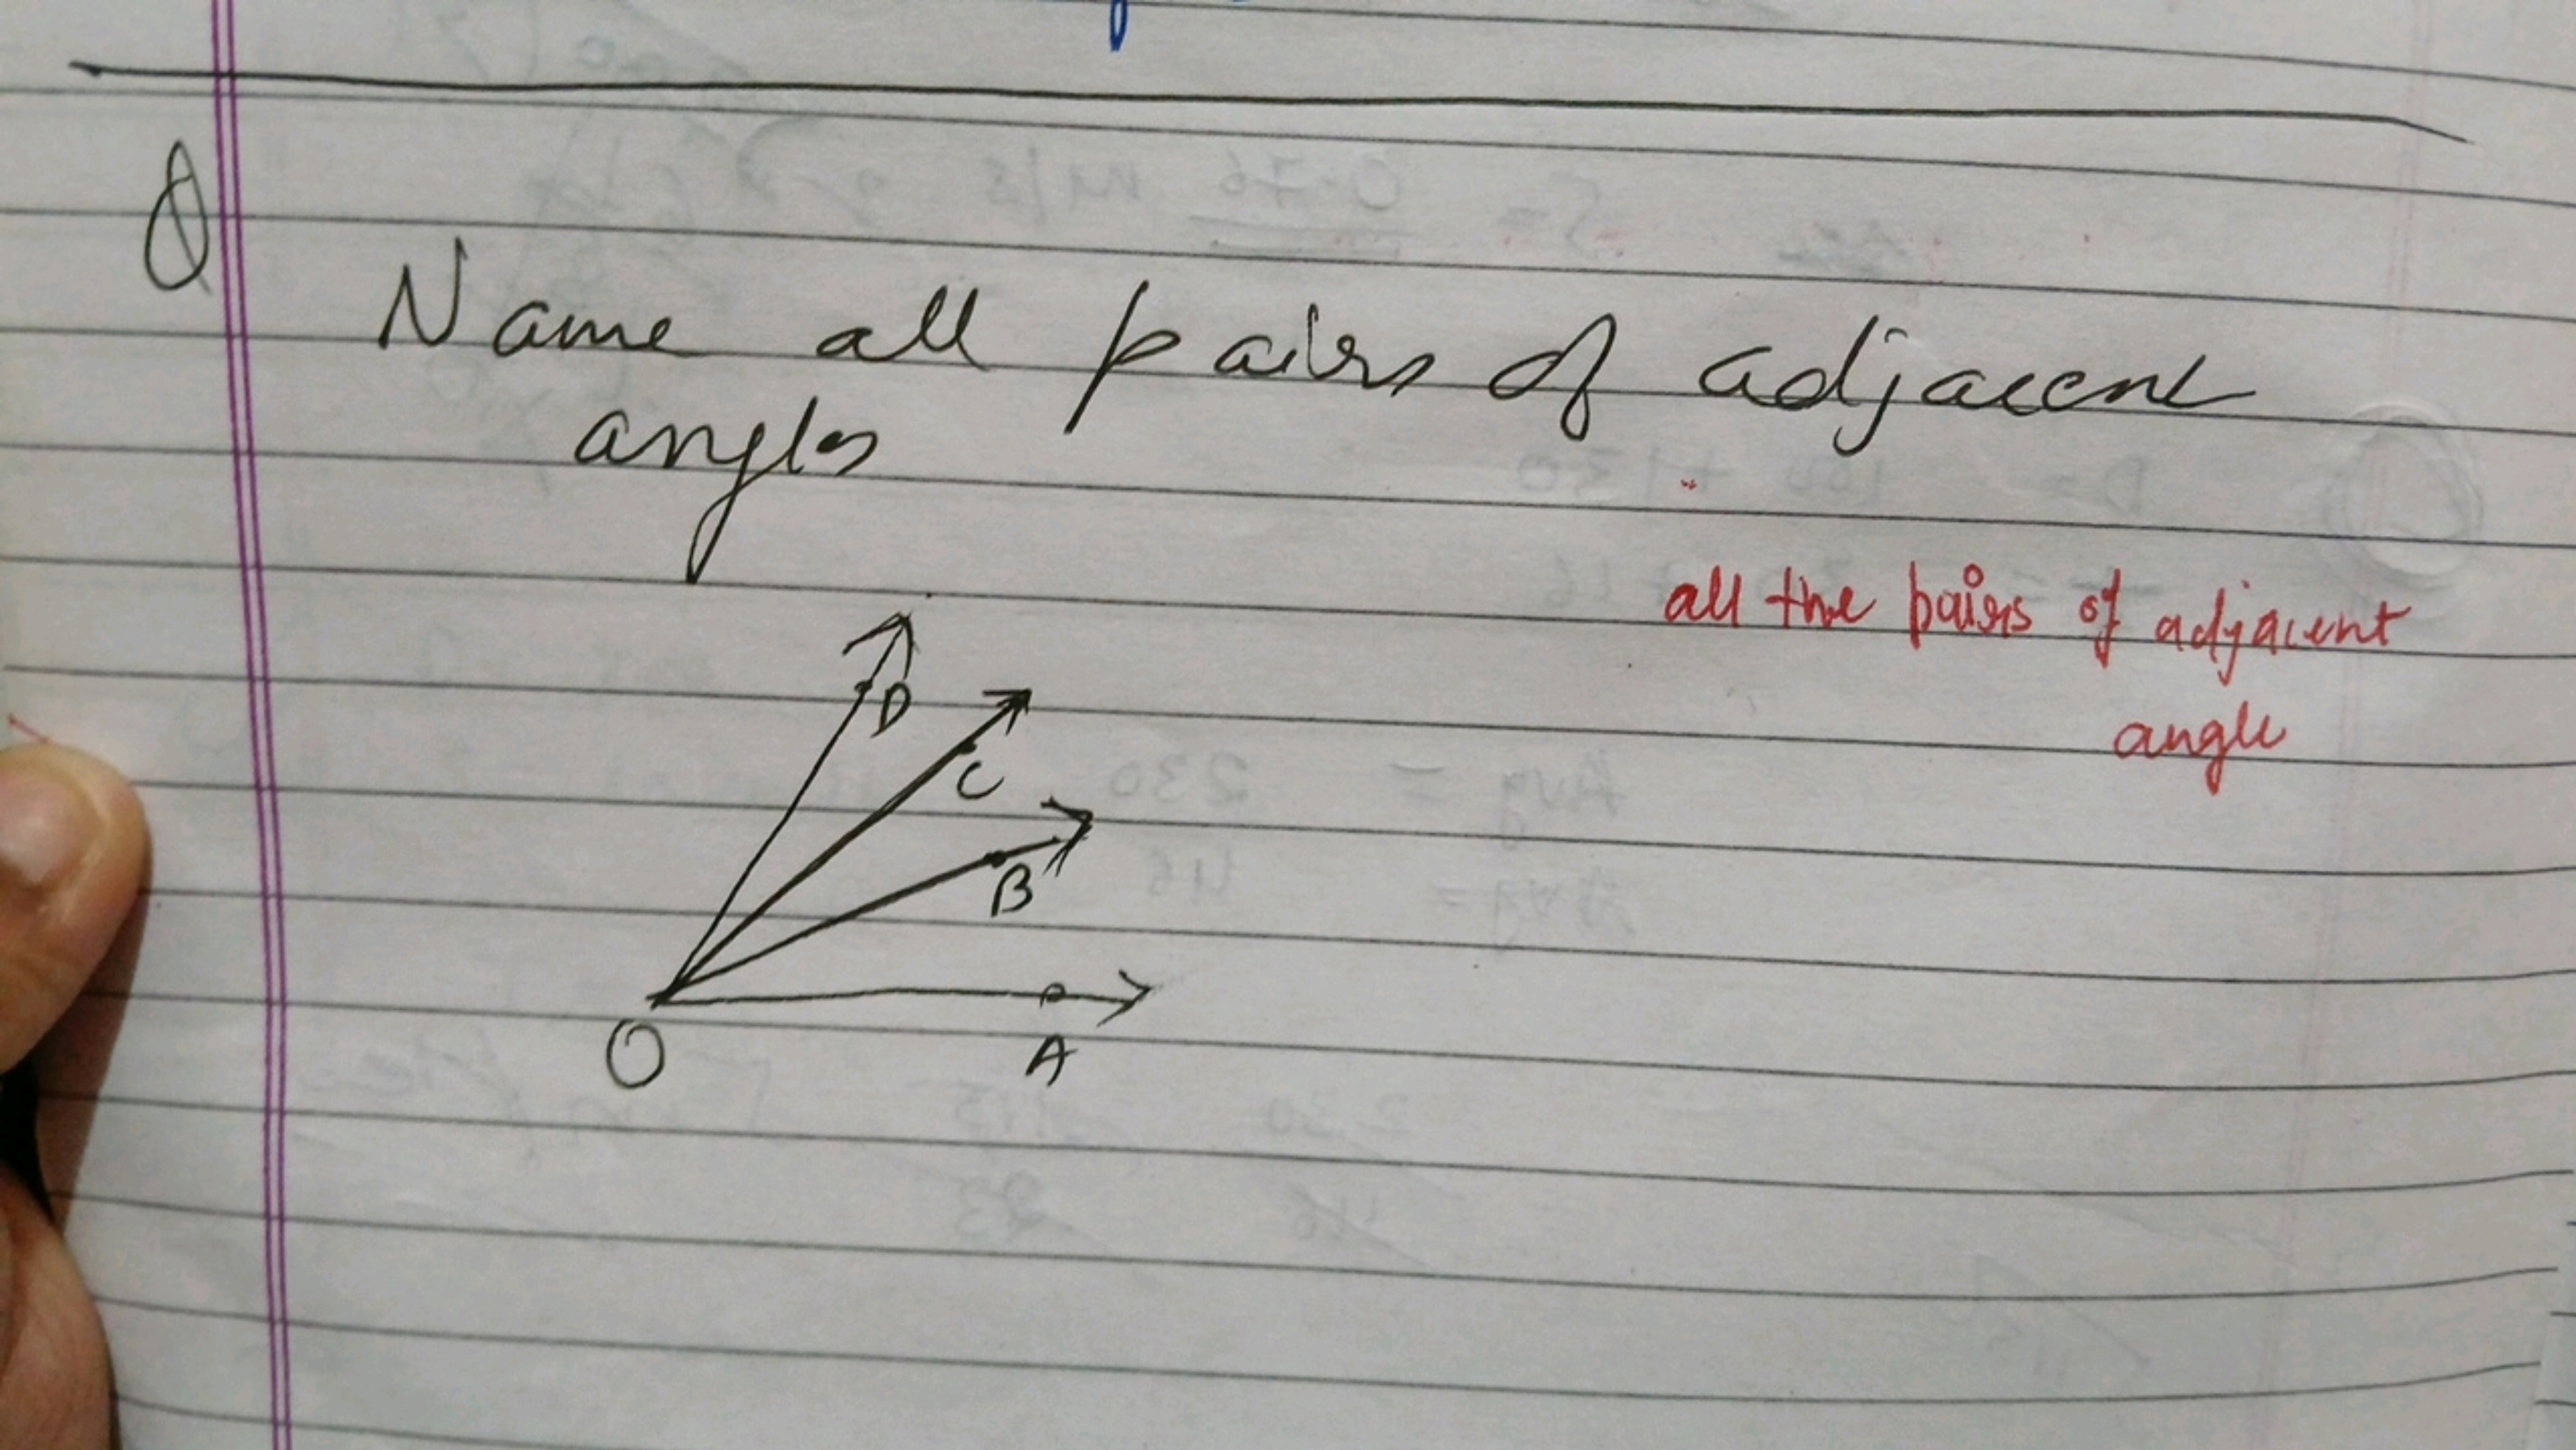 Q
Name all pairs of adjacent
angles
all the pairs of adjacent
angle
D
C
B
O
A